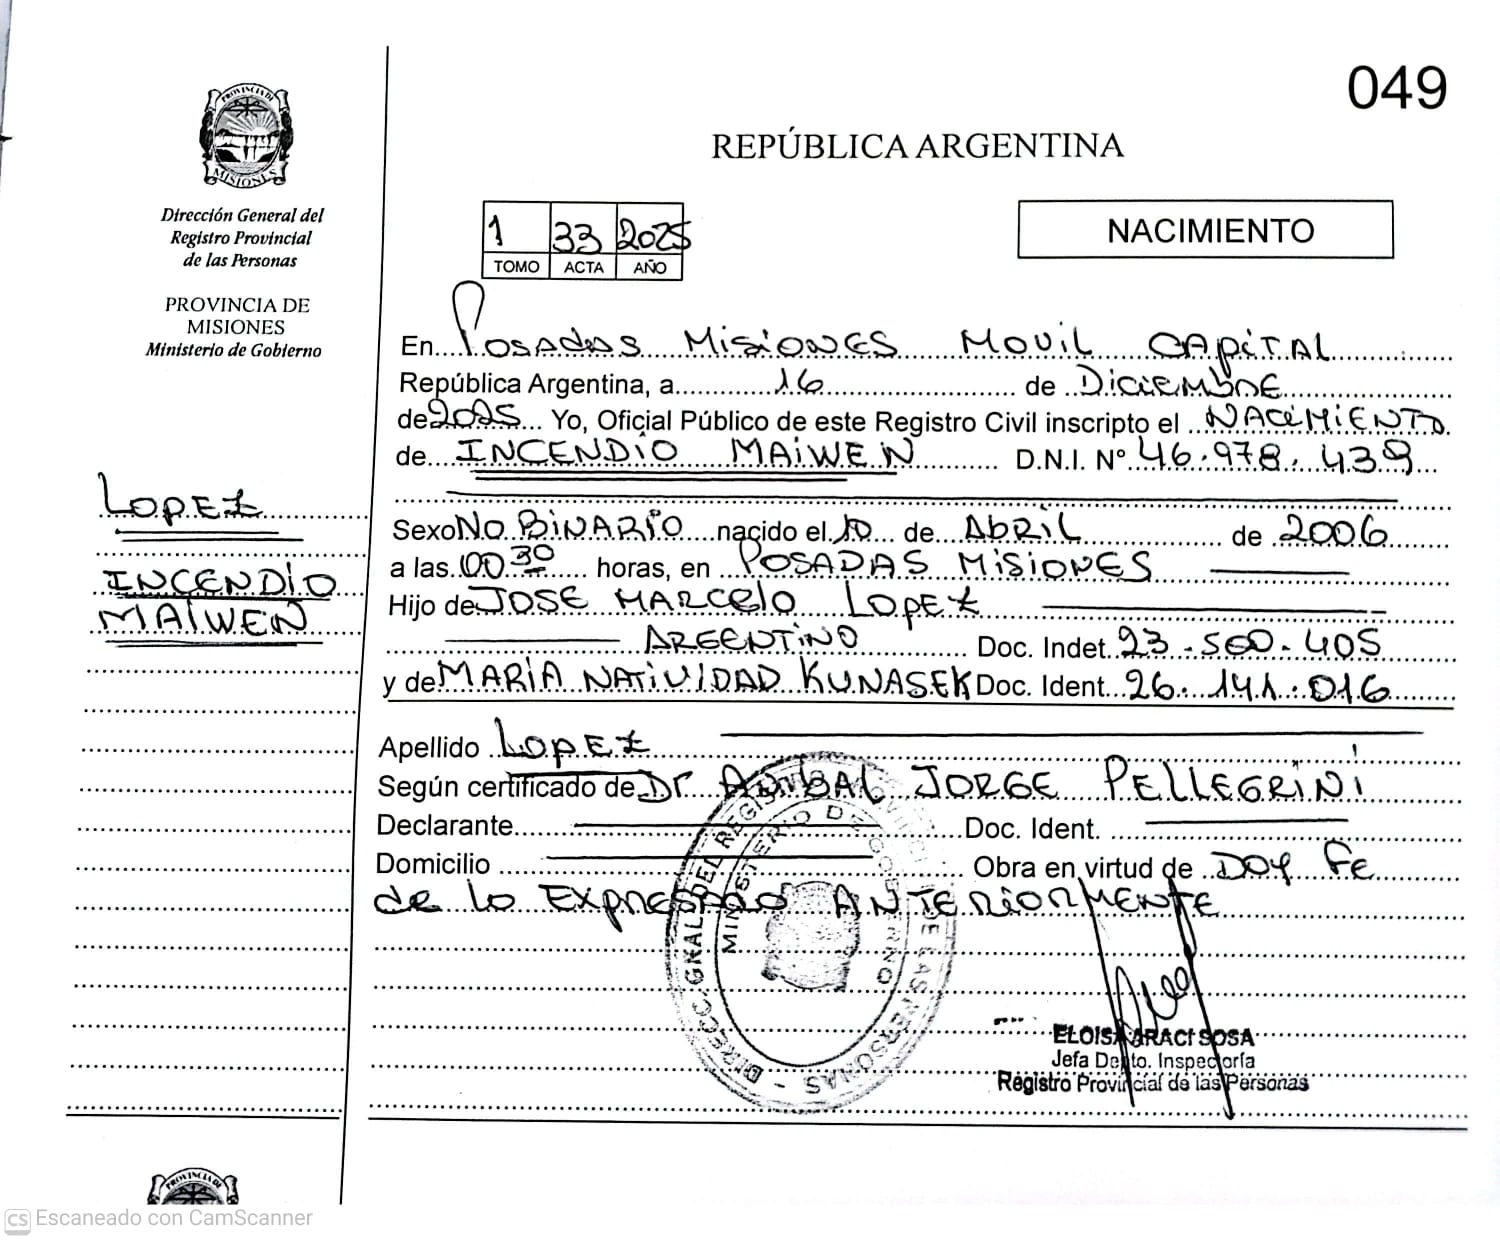 049
PROVINCIA DE
MISIONES
REPÚBLICA ARGENTINA
Dirección General del
Registro Provincial
de las Personas
PROVINCIA DE
MISIONES
Ministerio de Gobierno
1 33 2025
TOMO ACTA AÑO
NACIMIENTO
En Posadas Misiones Movil Capital
República Argentina, a 16 de Diciembre
de 2025 Yo, Oficial Público de este Registro Civil inscripto el NACIMIENTO
de INCENDIO MAIWEN D.N.I. N° 46.978.439
LOPEZ
INCENDIO
MAIWEN
Sexo No BINARIO nacido el 10 de Abril de 2006
a las 00 30 horas, en POSADAS MISIONES
Hijo de JOSE MARCELO LOPEZ
ARGENTINO Doc. Indet. 23.500.405
y de MARIA NATIVIDAD KUNASEK Doc. Ident. 26.141.016
Apellido LOPEZ
Según certificado de Dr. ANIBAL JORGE PELLEGRINI
Declarante Doc. Ident.
Domicilio Obra en virtud de DOY Fe
de lo EXPRESADO ANTERIORMENTE
DIRECC. GRAL. DEL REGISTRO PROVINCIAL DE LAS PERSONAS
MINISTERIO DE GOBIERNO
ELOISA ARACI SOSA
Jefa Depto. Inspectoría
Registro Provincial de las Personas
PROVINCIA DE
CS Escaneado con CamScanner